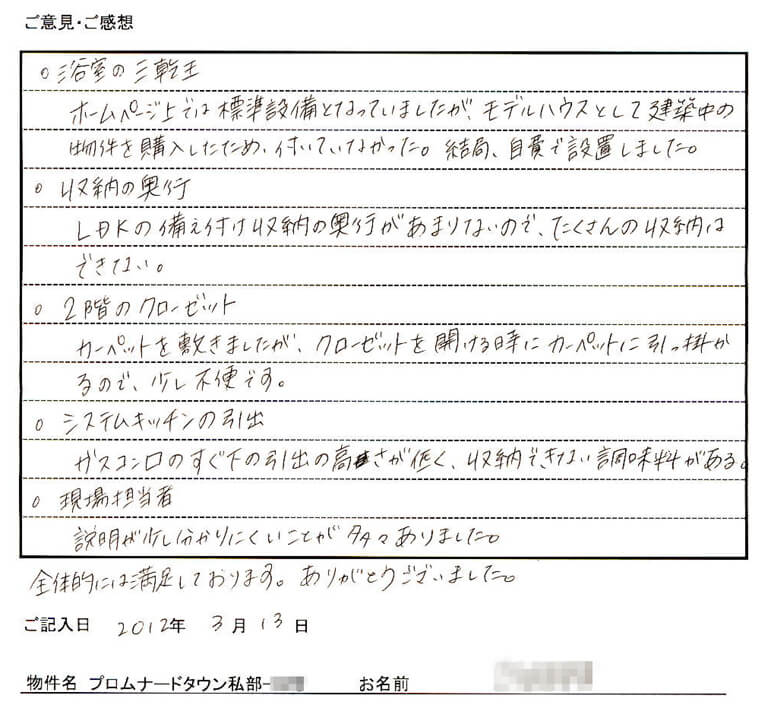 ご意見・ご感想
○浴室の三乾王
ホームページ上では標準設備となっていましたが、モデルハウスとして建築中の
物件を購入したため、付いていなかった。結局、自費で設置しました。
○収納の奥行
LDKの備え付け収納の奥行があまりないので、たくさんの収納は
できない。
○2階のクローゼット
カーペットを敷きましたが、クローゼットを開ける時にカーペットに引っ掛か
るので、少し不便です。
○システムキッチンの引出
ガスコンロのすぐ下の引出の高さが低く、収納できない調味料がある。
○現場担当者
説明が少し分かりにくいことが多々ありました。
全体的には満足しております。ありがとうございました。
ご記入日 2012年 3月13日
物件名 プロムナードタウン私部- お名前